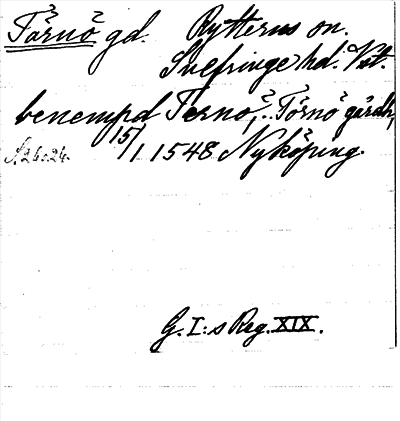 Tärnö gd. Rytterns sn.
Snefringe hd. Vstm.
benempd Ternö, Törnö gårdh,
15/1 1548 Nyköping.
S. 26 o 26.
G. I:s Reg. XIX.